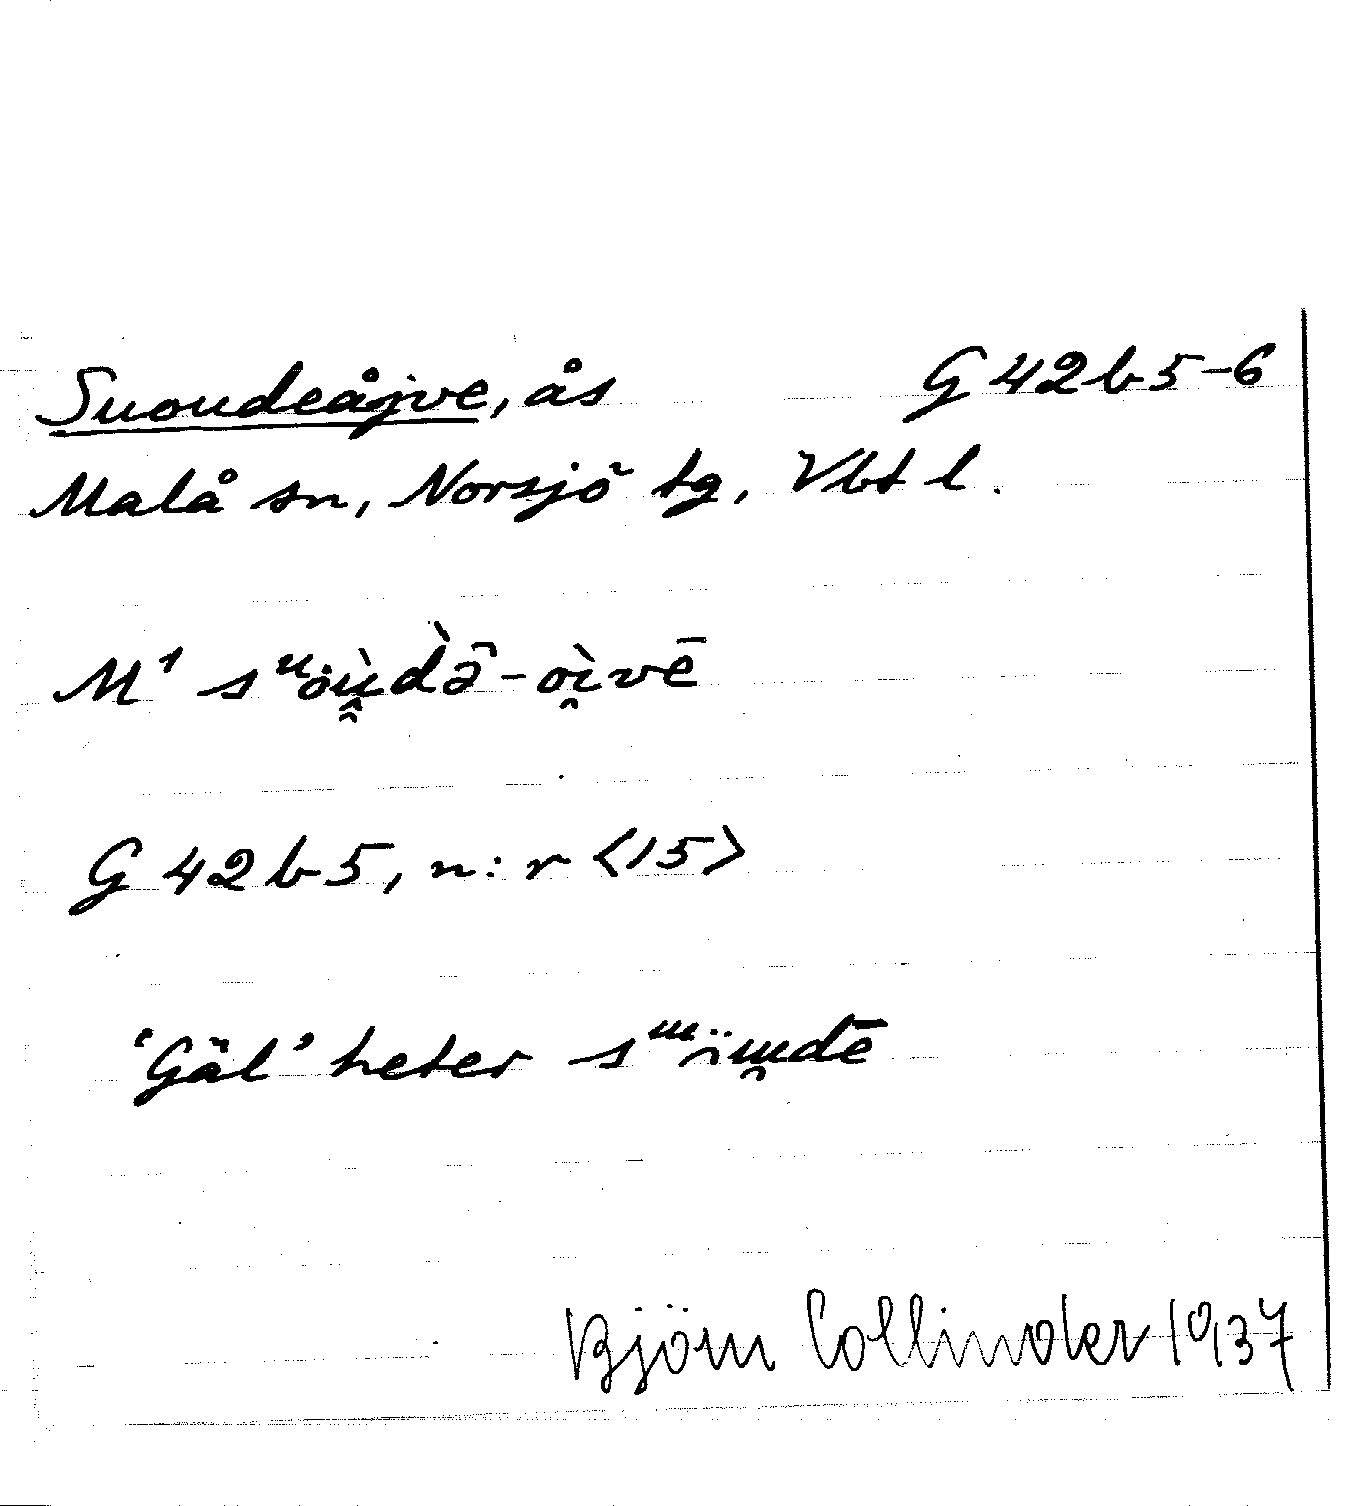 Suoudeåjve, ås G 42 b 5-6
Malå sn, Norsjö tg, Vbt l.
M¹ sᵘöù̯də̀̂-òi̯vē
G 42 b 5, n:r <15>
'Gäl' heter
Björn Collinder 1937